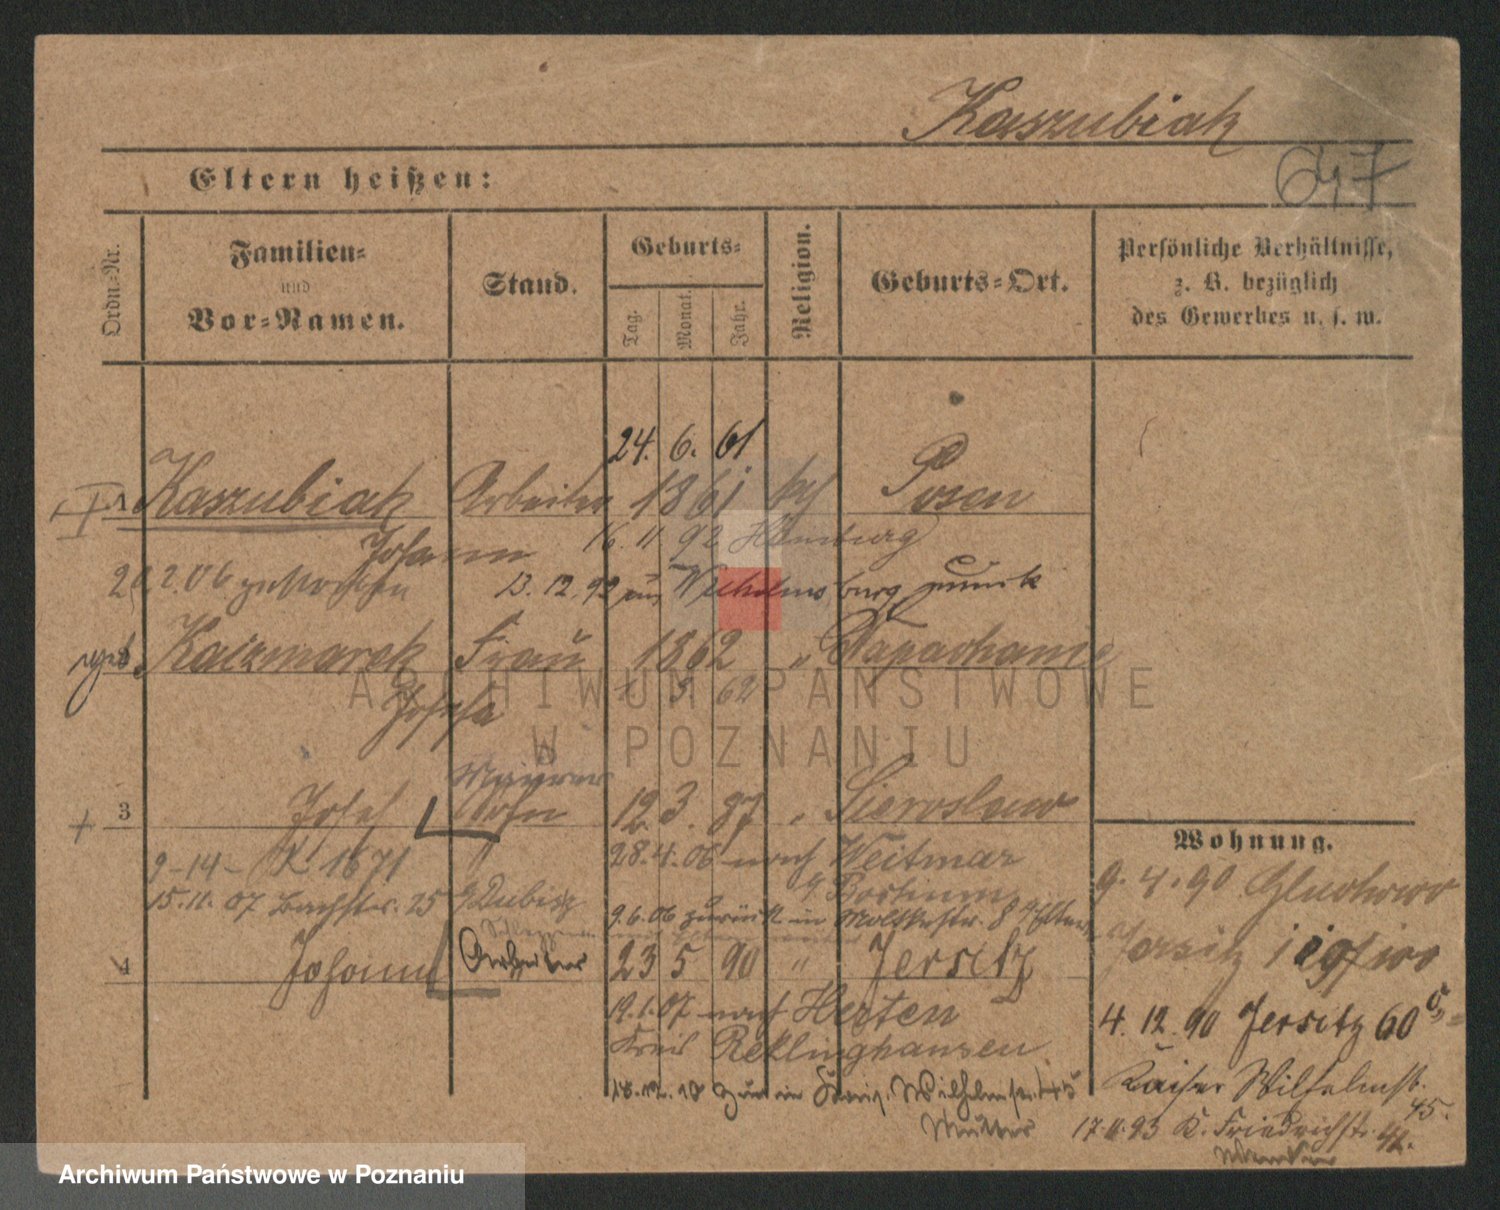 Kaszubiak
647
Eltern heißen:
Ordn.-Nr.
Familien-
und
Vor-Namen.
Stand.
Geburts-
Tag.
Monat.
Jahr.
Religion.
Geburts-Ort.
Persönliche Verhältnisse,
z. B. bezüglich
des Gewerbes u. s. w.
24. 6. 61
Kaszubiak Arbeiter 1861 kath Posen
Johann 16. 11 92 Hamburg
2.06 13. 12. 92 aus Wilhelmsburg zurück
Kaczmarek Frau 1862 "
Josefa 5 62
ARCHIWUM PAŃSTWOWE
W POZNANIU
Maurer
3 Josef Sohn 12 3. 87 " Sieroslaw
Wohnung.
9-14- K 1671 " 28.4.06 nach Weitmar
9. 4. 90 Gluchowo
15.11.07 Bachstr. 25 b/ Dubisz Bochum
9.6.06 zurück in Moltkestr. 8 b/ Eltern
4 Johann Arbeiter 23 5 90 " Jersitz
Jersitz
19.1.07 nach Herten
4. 12. 90 Jersitz 60
Kreis Reklinghausen
18.12.18 zur in Wilhelmstr. 45
Kaiser Wilhelmstr. 45.
Mutter
17.11.93 K. Friedrichstr. 42.
Archiwum Państwowe w Poznaniu